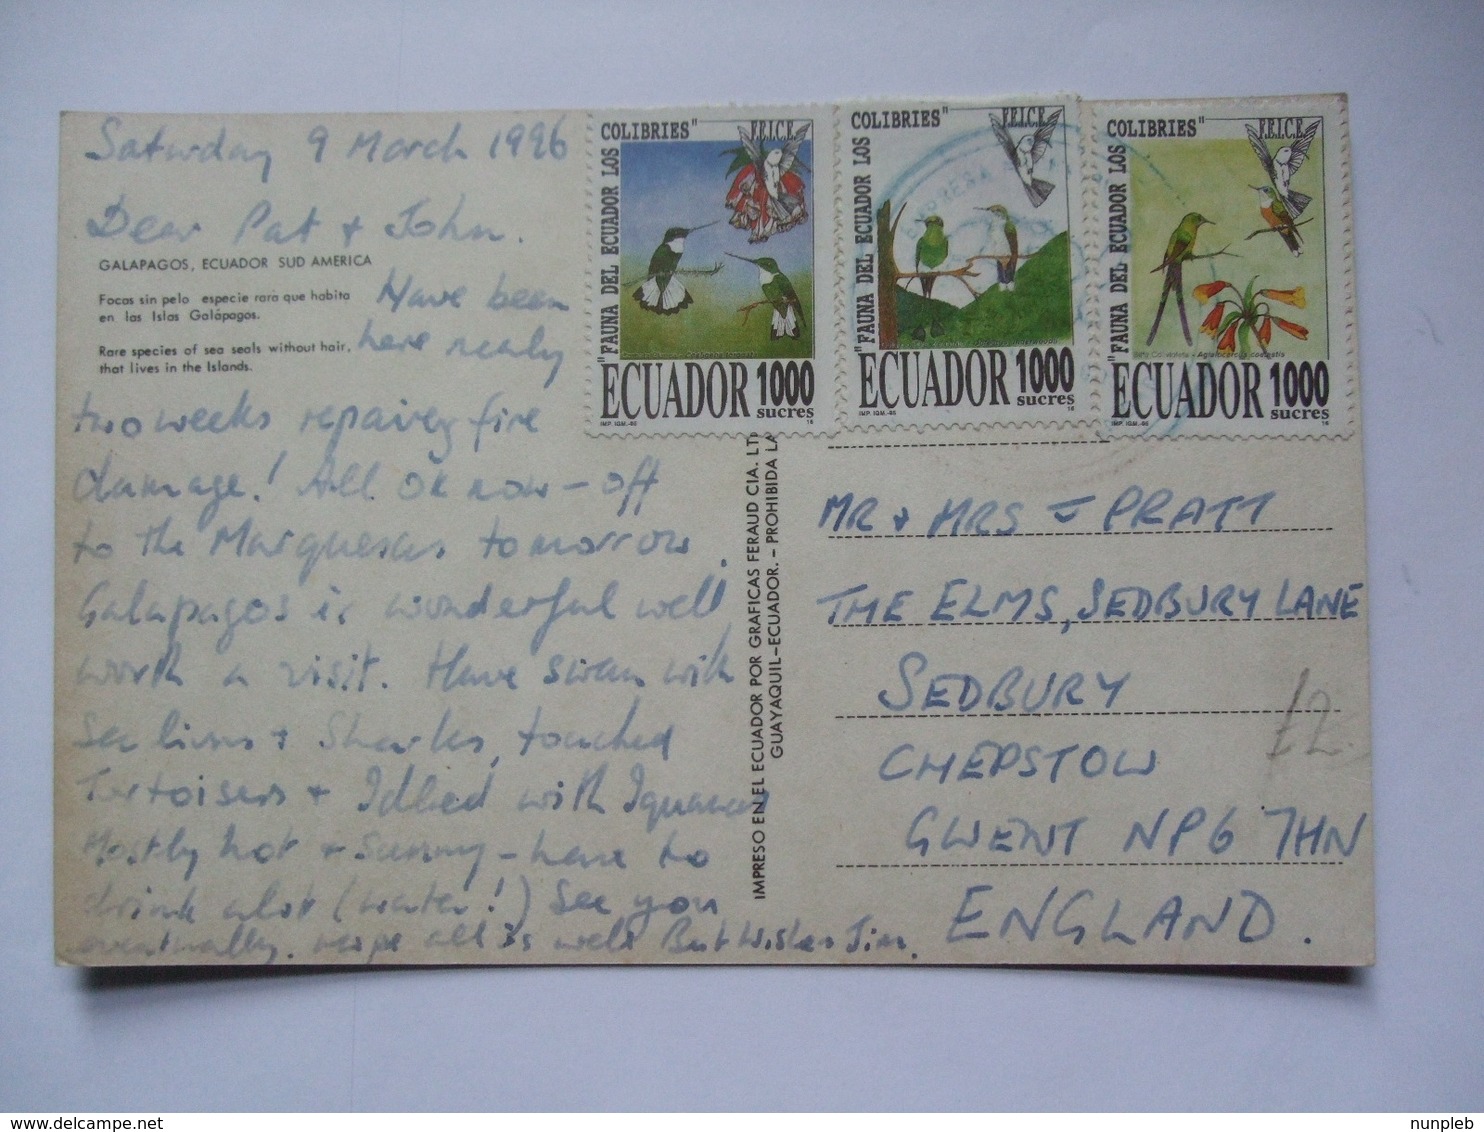 Saturday 9 March 1996
Dear Pat + John.
GALAPAGOS, ECUADOR SUD AMERICA
Focas sin pelo especie rara que habita
en las Islas Galápagos.
Rare species of sea seals without hair,
that lives in the Islands.
Have been
here nearly
two weeks repairing fire
damage! All OK now - off
to the Marquesas tomorrow.
Galapagos is wonderful well
worth a visit. Have swam with
Sea lions + Sharks, touched
Tortoises + Idled with Iguanas
Mostly hot + Sunny - have to
drink alot (water!) See you
eventually. Hope all is well Best Wishes Jim.
"FAUNA DEL ECUADOR LOS COLIBRIES"
F.E.I.C.E.
ECUADOR 1000
sucres
IMP. IGM.-95
"FAUNA DEL ECUADOR LOS COLIBRIES"
F.E.I.C.E.
ECUADOR 1000
sucres
IMP. IGM.-95
"FAUNA DEL ECUADOR LOS COLIBRIES"
F.E.I.C.E.
Aglaiocercus coelestis
ECUADOR 1000
sucres
IMP. IGM.-95
IMPRESO EN EL ECUADOR POR GRAFICAS FERAUD CIA. LT
GUAYAQUIL-ECUADOR. - PROHIBIDA LA
MR + MRS J PRATT
THE ELMS, SEDBURY LANE
SEDBURY
CHEPSTOW
GWENT NP6 7HN
ENGLAND.
£2.
delcampe.net
nunpleb